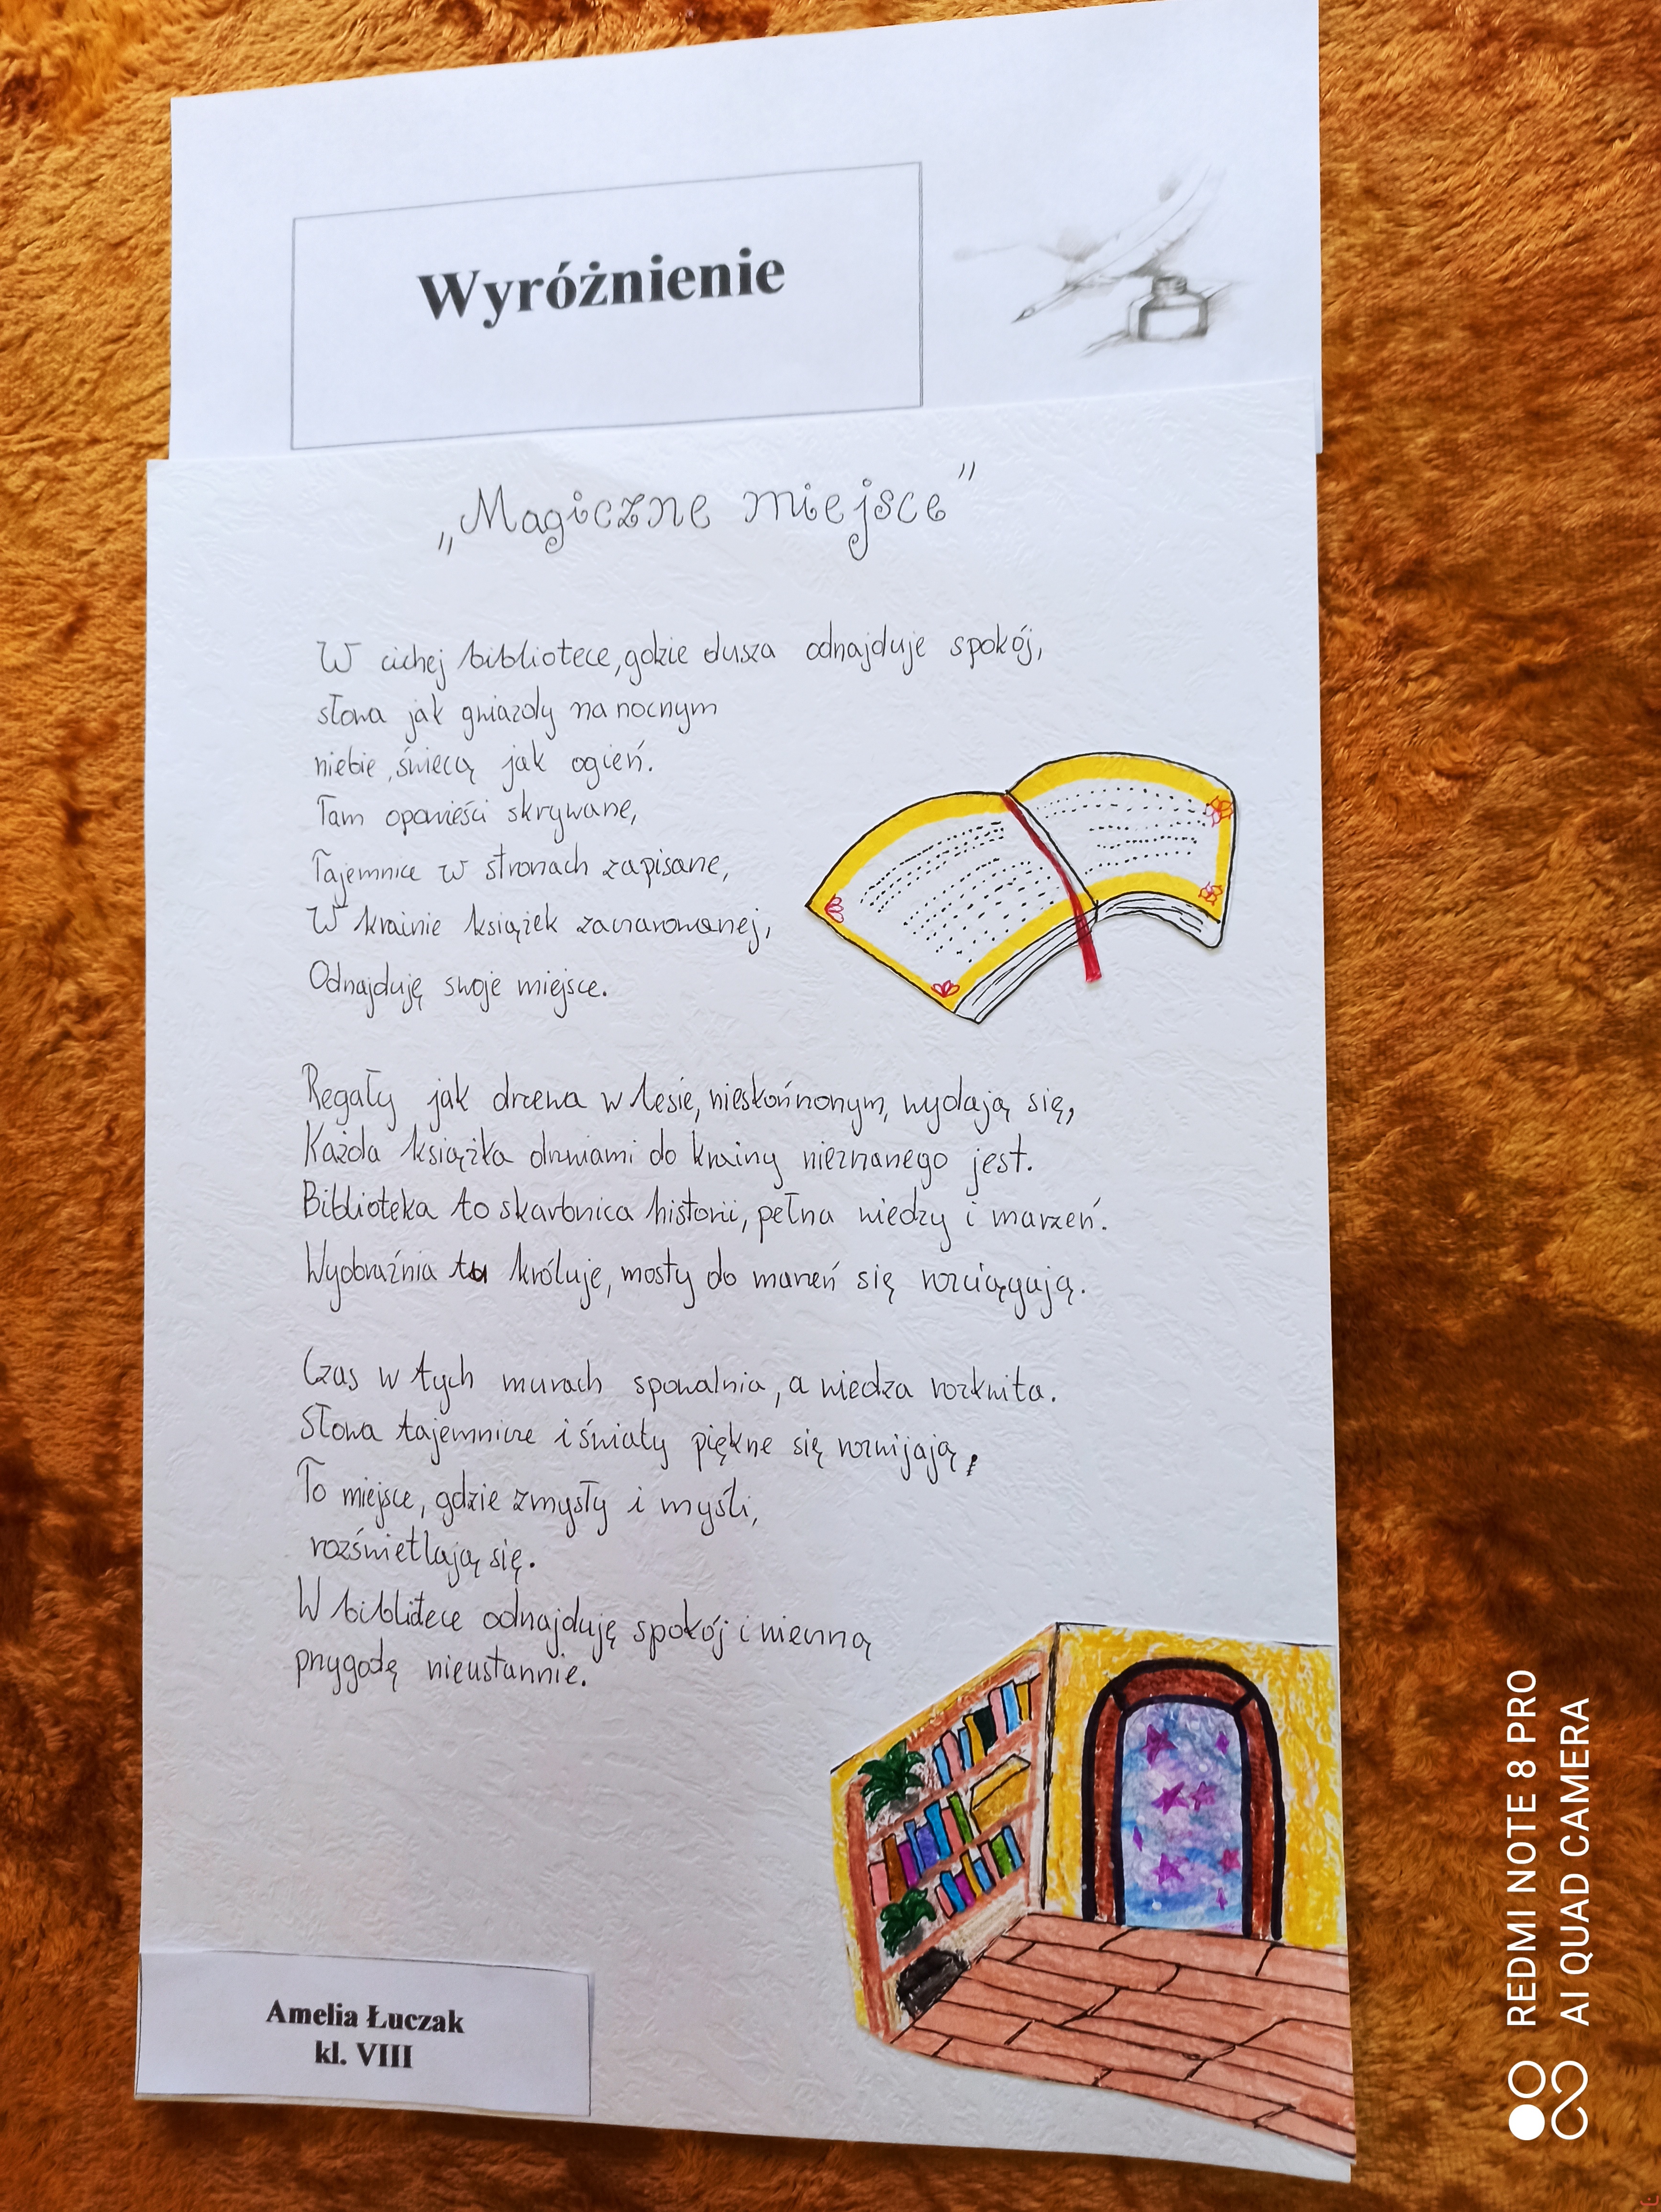 Wyróżnienie
„Magiczne miejsce”
W cichej bibliotece, gdzie dusza odnajduje spokój,
słowa jak gwiazdy na nocnym
niebie, świecą jak ogień.
Tam opowieści skrywane,
Tajemnice w stronach zapisane,
W krainie książek zaczarowanej,
Odnajduję swoje miejsce.
Regały jak drzewa w lesie, nieskończonym, wydają się,
Każda książka drzwiami do krainy nieznanego jest.
Biblioteka to skarbnica historii, pełna wiedzy i marzeń.
Wyobraźnia tu króluje, mosty do marzeń się rozciągają.
Czas w tych murach spowalnia, a wiedza rozkwita.
Słowa tajemnicze i światy piękne się rozwijają,
To miejsce, gdzie zmysły i myśli,
rozświetlają się.
W biblitece odnajduję spokój i wierną
przygodę nieustannie.
Amelia Łuczak
kl. VIII
REDMI NOTE 8 PRO
AI QUAD CAMERA